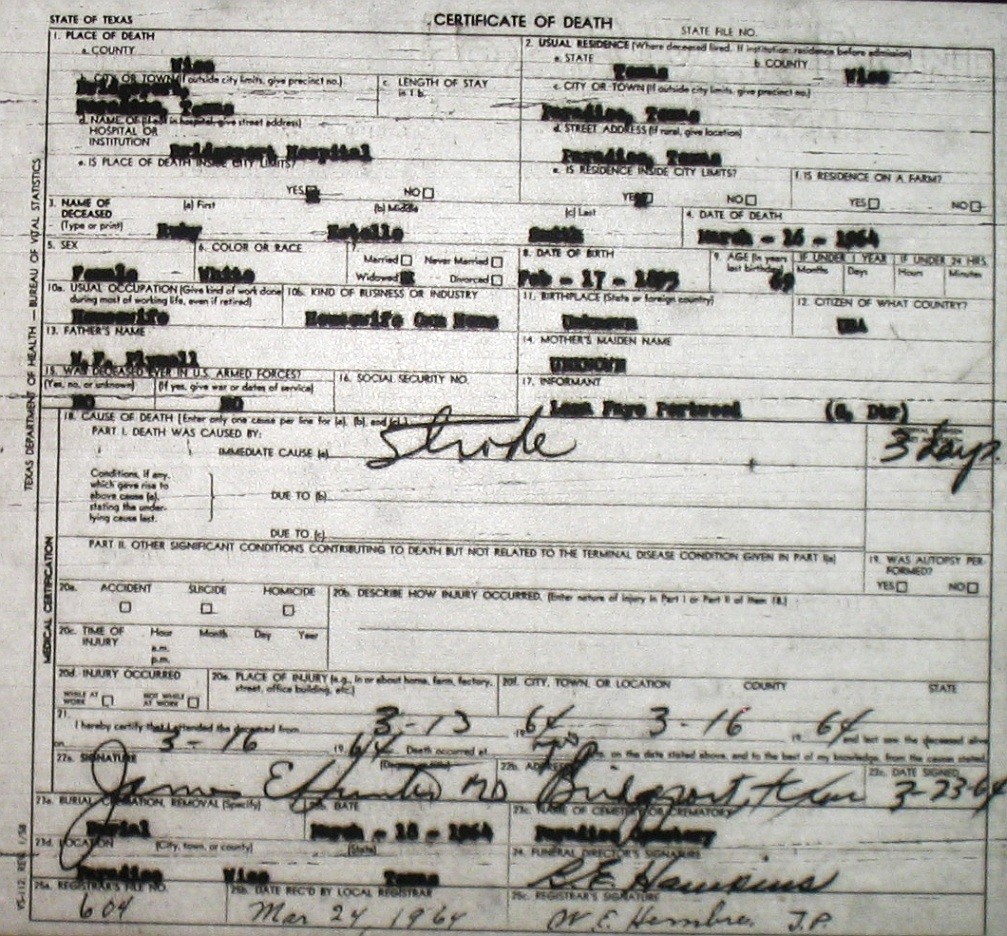 STATE OF TEXAS
CERTIFICATE OF DEATH
STATE FILE NO.
1. PLACE OF DEATH
a. COUNTY
Wise
2. USUAL RESIDENCE (Where deceased lived. If institution: residence before admission)
a. STATE
Texas
b. COUNTY
Wise
b. CITY OR TOWN (If outside city limits, give precinct no.)
Bridgeport,
Paradise, Texas
c. LENGTH OF STAY
in 1 b.
c. CITY OR TOWN (If outside city limits, give precinct no.)
Paradise, Texas
d. NAME OF (If not in hospital, give street address)
HOSPITAL OR
INSTITUTION
Bridgeport Hospital
d. STREET ADDRESS (If rural, give location)
Paradise, Texas
e. IS PLACE OF DEATH INSIDE CITY LIMITS?
YES NO
e. IS RESIDENCE INSIDE CITY LIMITS?
YES NO
f. IS RESIDENCE ON A FARM?
YES NO
3. NAME OF
DECEASED
(Type or print)
(a) First
Ruby
(b) Middle
Estelle
(c) Last
Smith
4. DATE OF DEATH
March - 16 - 1964
5. SEX
Female
6. COLOR OR RACE
White
7.
Married Never Married
Widowed Divorced
8. DATE OF BIRTH
Feb - 17 - 1895
9. AGE (In years
last birthday)
69
IF UNDER 1 YEAR
Months Days
IF UNDER 24 HRS.
Hours Minutes
10a. USUAL OCCUPATION (Give kind of work done
during most of working life, even if retired)
Housewife
10b. KIND OF BUSINESS OR INDUSTRY
Housewife Own Home
11. BIRTHPLACE (State or foreign country)
Unknown
12. CITIZEN OF WHAT COUNTRY?
USA
13. FATHER'S NAME
Plymell
14. MOTHER'S MAIDEN NAME
UNKNOWN
15. WAS DECEASED EVER IN U.S. ARMED FORCES?
(Yes, no, or unknown)
NO
(If yes, give war or dates of service)
NO
16. SOCIAL SECURITY NO.
17. INFORMANT
Faye Portwood (G. Dtr)
18. CAUSE OF DEATH [Enter only one cause per line for (a), (b), and (c).]
PART I. DEATH WAS CAUSED BY:
IMMEDIATE CAUSE (a)
Stroke
3 days
Conditions, if any,
which gave rise to
above cause (a),
stating the under-
lying cause last.
DUE TO (b)
DUE TO (c)
PART II. OTHER SIGNIFICANT CONDITIONS CONTRIBUTING TO DEATH BUT NOT RELATED TO THE TERMINAL DISEASE CONDITION GIVEN IN PART I(a)
19. WAS AUTOPSY PER-
FORMED?
YES NO
20a. ACCIDENT SUICIDE HOMICIDE
20b. DESCRIBE HOW INJURY OCCURRED. (Enter nature of injury in Part I or Part II of item 18.)
20c. TIME OF
INJURY
Hour Month Day Year
a.m.
p.m.
20d. INJURY OCCURRED
WHILE AT
WORK
NOT WHILE
AT WORK
20e. PLACE OF INJURY (e.g., in or about home, farm, factory,
street, office building, etc.)
20f. CITY, TOWN, OR LOCATION COUNTY STATE
21.
I hereby certify that I attended the deceased from 3-13 19 64 3-16 19 64 and last saw the deceased alive
on 3-16 19 64 Death occurred at m. on the date stated above, and to the best of my knowledge, from the causes stated.
22a. SIGNATURE (Degree or title)
James E Hunter MD
22b. ADDRESS
Bridgeport, Texas
22c. DATE SIGNED
3-23-64
23a. BURIAL, CREMATION, REMOVAL (Specify)
Burial
23b. DATE
March - 18 - 1964
23c. NAME OF CEMETERY OR CREMATORY
Paradise Cemetery
23d. LOCATION (City, town, or county) (State)
Paradise Wise Texas
24. FUNERAL DIRECTOR'S SIGNATURE
Hawkins
25a. REGISTRAR'S FILE NO.
604
25b. DATE REC'D BY LOCAL REGISTRAR
Mar 24, 1964
25c. REGISTRAR'S SIGNATURE
W. E. Hembree J.P.
TEXAS DEPARTMENT OF HEALTH — BUREAU OF VITAL STATISTICS
MEDICAL CERTIFICATION
VS-112 REV. 1/58